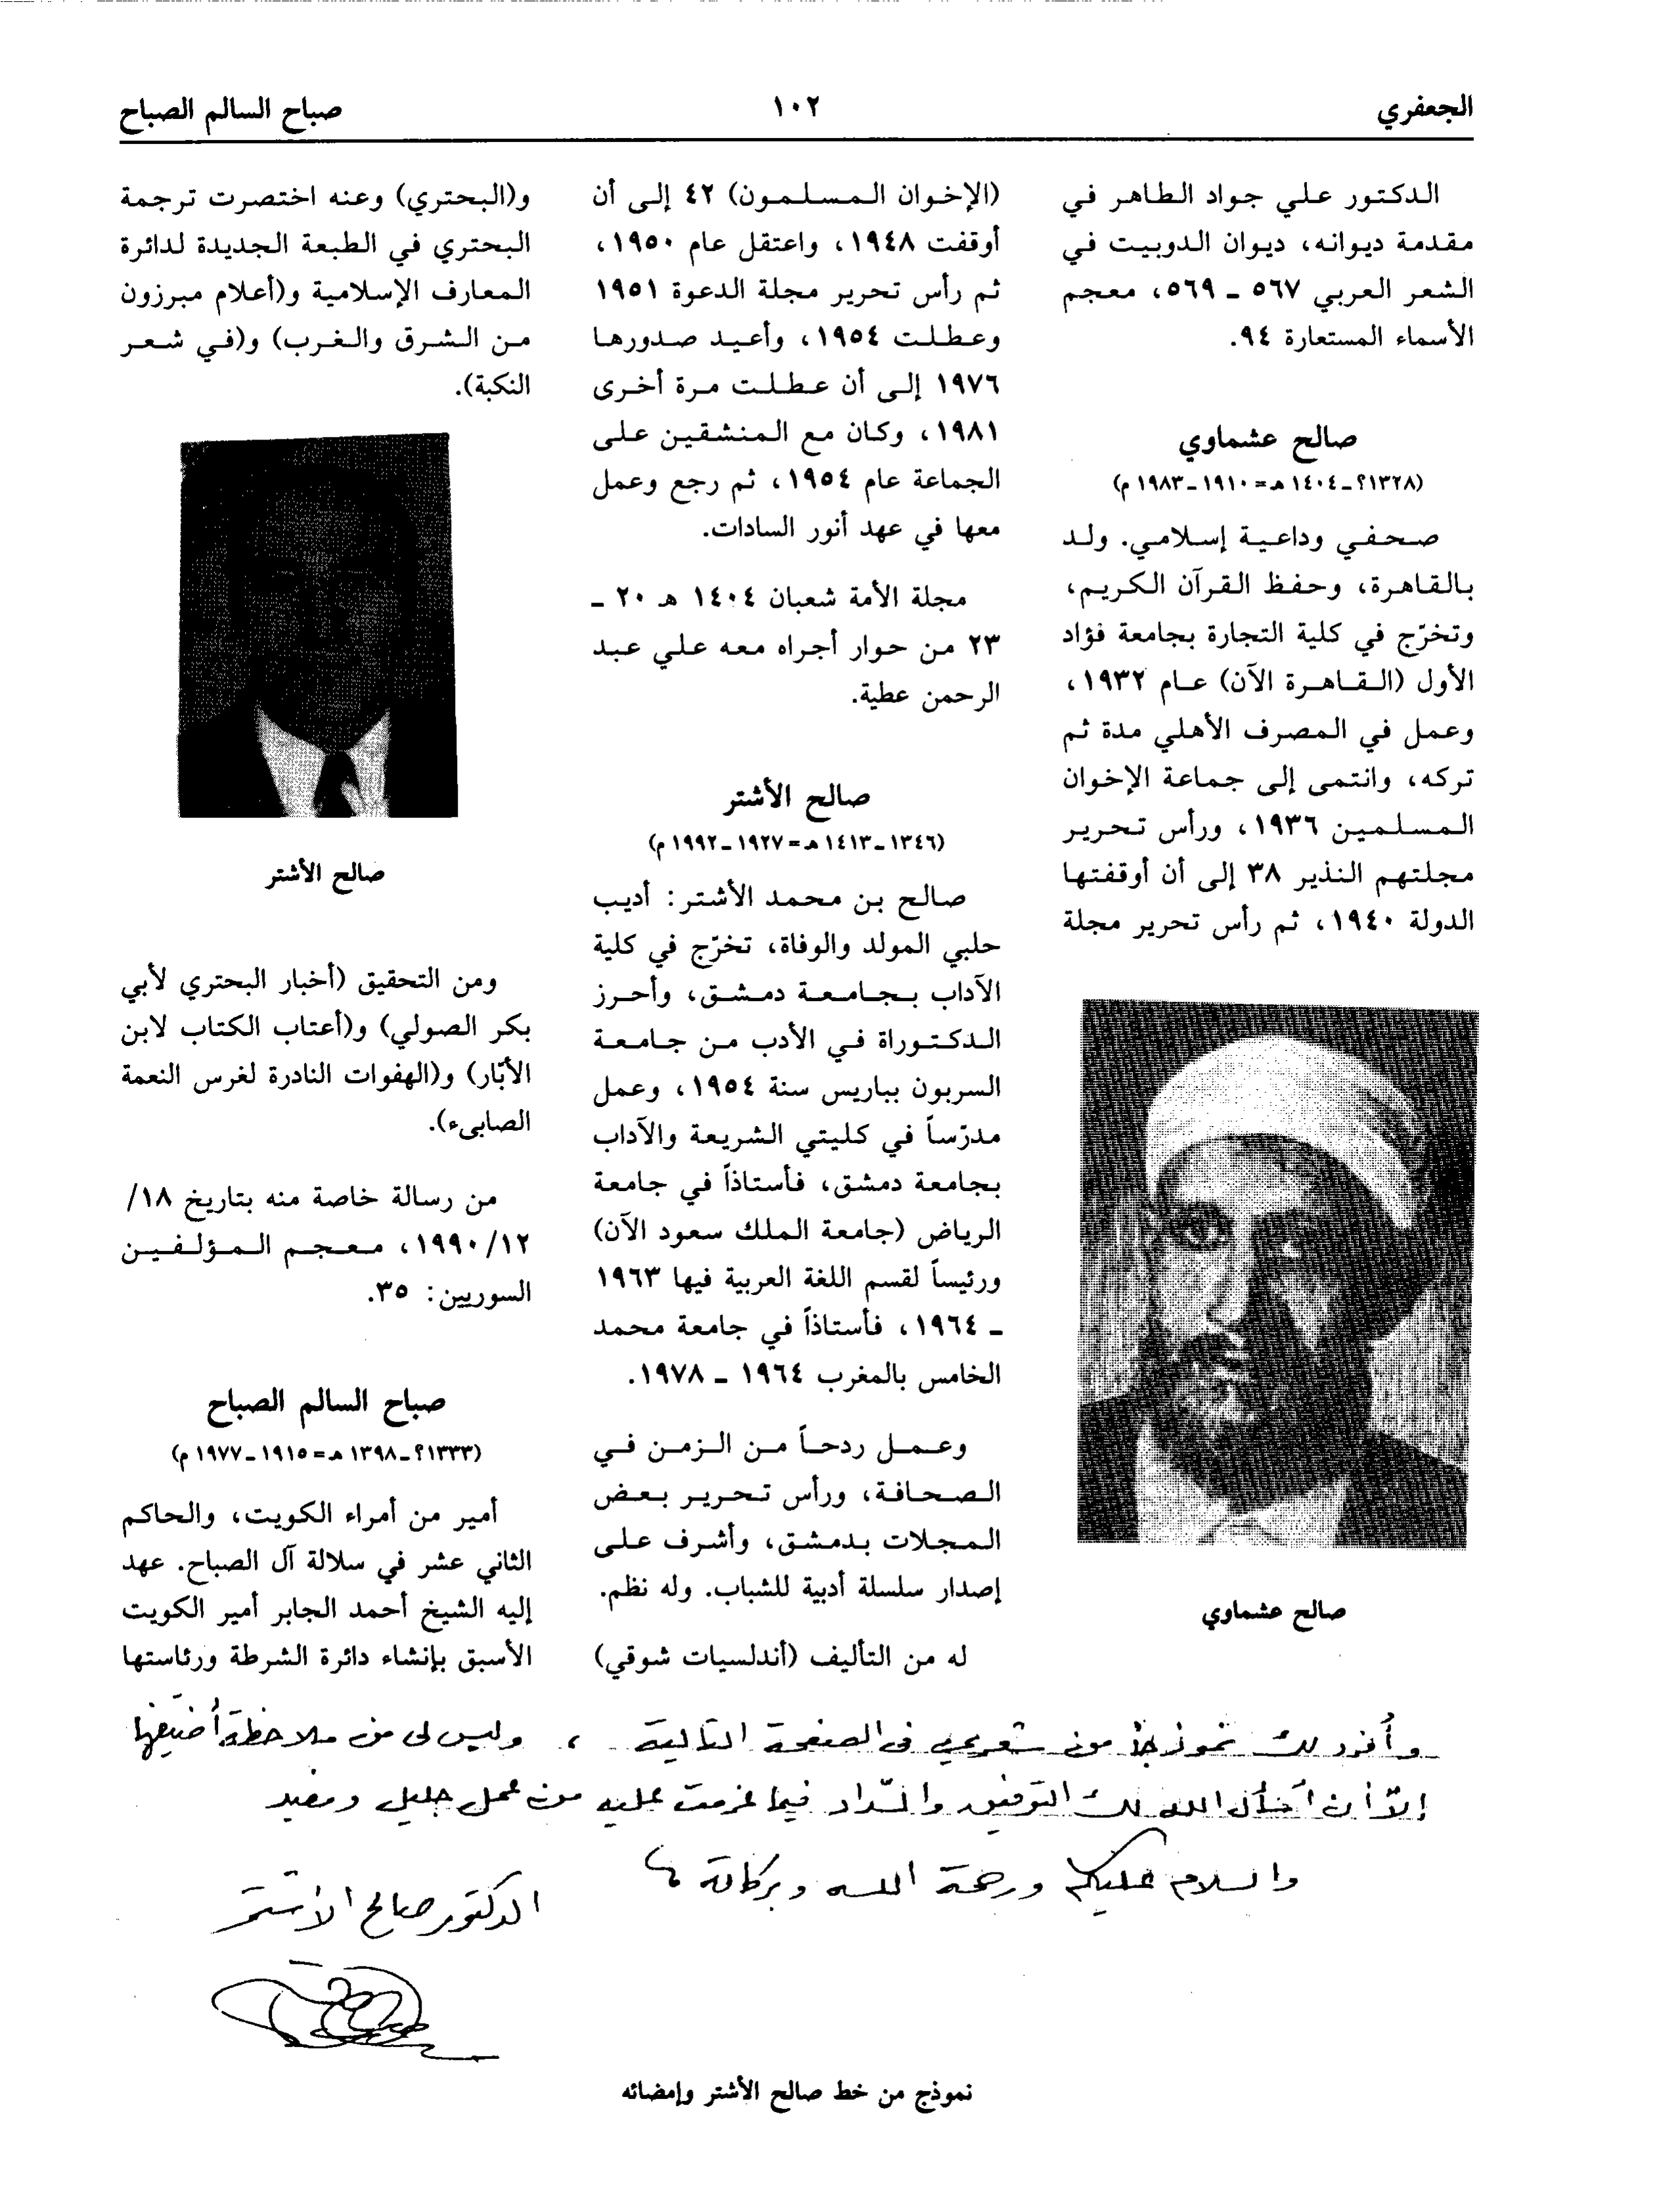 الجعفري
١٠٢
صباح السالم الصباح
الدكتور علي جواد الطاهر في
مقدمة ديوانه، ديوان الدوبيت في
الشعر العربي ٥٦٧ ـ ٥٦٩، معجم
الأسماء المستعارة ٩٤.
صالح عشماوي
(١٣٢٨؟ـ١٤٠٤ هـ=١٩١٠ـ١٩٨٣ م)
صحفي وداعية إسلامي. ولد
بالقاهرة، وحفظ القرآن الكريم،
وتخرّج في كلية التجارة بجامعة فؤاد
الأول (القاهرة الآن) عام ١٩٣٢،
وعمل في المصرف الأهلي مدة ثم
تركه، وانتمى إلى جماعة الإخوان
المسلمين ١٩٣٦، ورأس تحرير
مجلتهم النذير ٣٨ إلى أن أوقفتها
الدولة ١٩٤٠، ثم رأس تحرير مجلة
صالح عشماوي
(الإخوان المسلمون) ٤٢ إلى أن
أوقفت ١٩٤٨، واعتقل عام ١٩٥٠،
ثم رأس تحرير مجلة الدعوة ١٩٥١
وعطلت ١٩٥٤، وأعيد صدورها
١٩٧٦ إلى أن عطلت مرة أخرى
١٩٨١، وكان مع المنشقين على
الجماعة عام ١٩٥٤، ثم رجع وعمل
معها في عهد أنور السادات.
مجلة الأمة شعبان ١٤٠٤ هـ ٢٠ ـ
٢٣ من حوار أجراه معه علي عبد
الرحمن عطية.
صالح الأشتر
(١٣٤٦ـ١٤١٣ هـ=١٩٢٧ـ١٩٩٢ م)
صالح بن محمد الأشتر: أديب
حلبي المولد والوفاة، تخرّج في كلية
الآداب بجامعة دمشق، وأحرز
الدكتوراة في الأدب من جامعة
السربون بباريس سنة ١٩٥٤، وعمل
مدرّساً في كليتي الشريعة والآداب
بجامعة دمشق، فأستاذاً في جامعة
الرياض (جامعة الملك سعود الآن)
ورئيساً لقسم اللغة العربية فيها ١٩٦٣
ـ ١٩٦٤، فأستاذاً في جامعة محمد
الخامس بالمغرب ١٩٦٤ ـ ١٩٧٨.
وعمل ردحاً من الزمن في
الصحافة، ورأس تحرير بعض
المجلات بدمشق، وأشرف على
إصدار سلسلة أدبية للشباب. وله نظم.
له من التأليف (أندلسيات شوقي)
و(البحتري) وعنه اختصرت ترجمة
البحتري في الطبعة الجديدة لدائرة
المعارف الإسلامية و(أعلام مبرزون
من الشرق والغرب) و(في شعر
النكبة).
صالح الأشتر
ومن التحقيق (أخبار البحتري لأبي
بكر الصولي) و(أعتاب الكتاب لابن
الأبّار) و(الهفوات النادرة لغرس النعمة
الصابىء).
من رسالة خاصة منه بتاريخ ١٨/
١٩٩٠/١٢، معجم المؤلفين
السوريين: ٣٥.
صباح السالم الصباح
(١٣٣٣؟ـ١٣٩٨ هـ=١٩١٥ـ١٩٧٧ م)
أمير من أمراء الكويت، والحاكم
الثاني عشر في سلالة آل الصباح. عهد
إليه الشيخ أحمد الجابر أمير الكويت
الأسبق بإنشاء دائرة الشرطة ورئاستها
وأفرد لك نموذجًا من شعري في الصفحة التالية، وليس لى من ملاحظة أضيفها
إلّا أن أسأل الله لك التوفيق والسّداد فيما عزمت عليه من عمل جليل ومفيد
والسلام عليكم ورحمة الله وبركاته
الدكتور صالح الأشتر
نموذج من خط صالح الأشتر وإمضائه